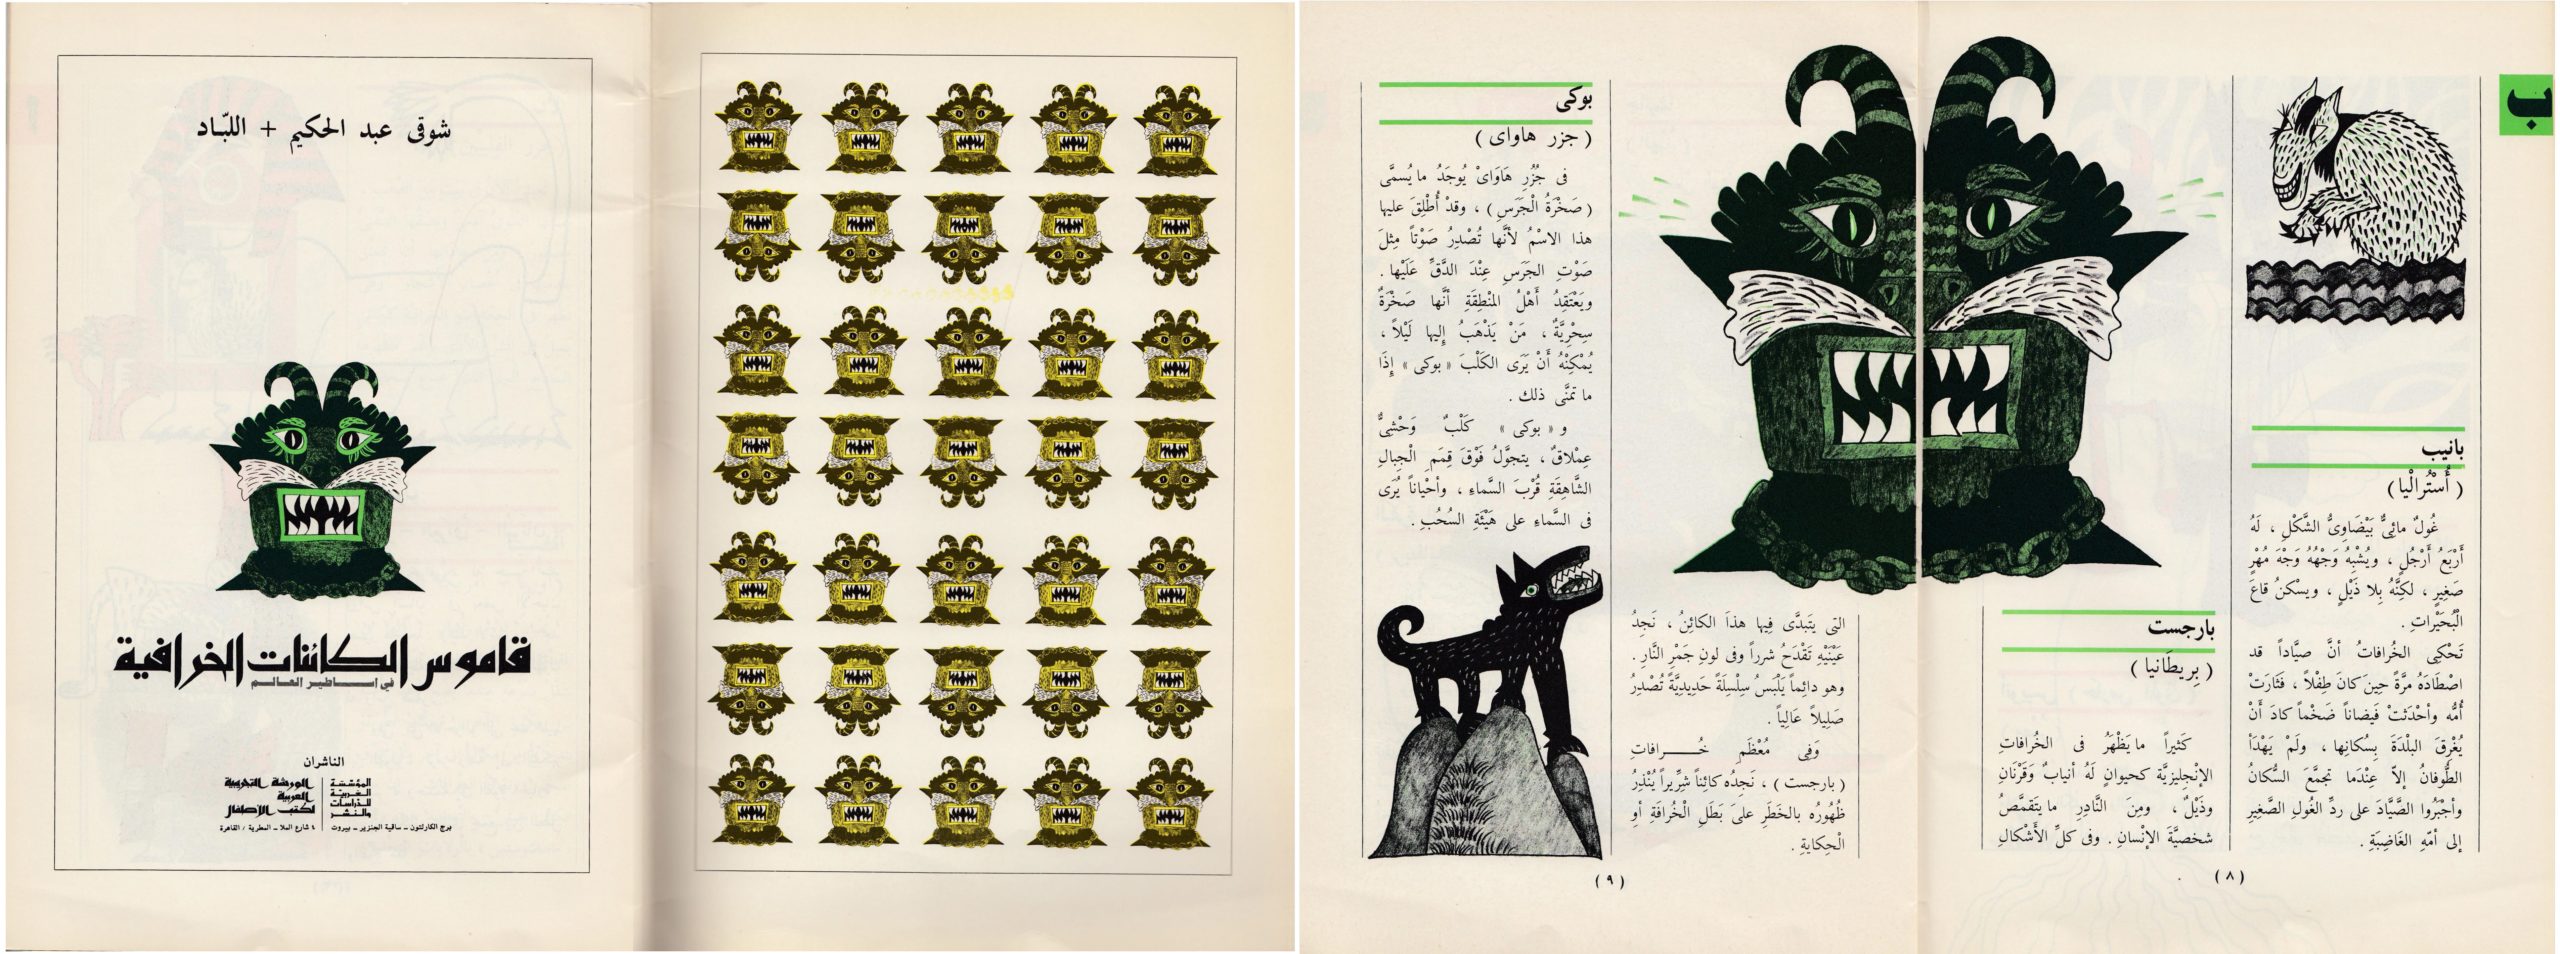 شوقى عبد الحكيم + اللبّاد
قاموس الكائنات الخرافية
في أساطير العالم
الناشران
المؤسّسة
العربيّة
للدراسات
والنشر
الورشة التجريبية
العربية
لكتب الأطفال
برج الكارلتون - ساقية الجنزير - بيروت
٤ شارع الملا - المطرية / القاهرة
ب
بانيب
( أُسْتُرالْيا )
غُولٌ مائِىٌّ بَيْضَاوِىُّ الشَّكْلِ ، لَهُ
أَرْبَعُ أَرْجُلٍ ، ويُشْبِهُ وَجْهُهُ وَجْهَ مُهْرٍ
صَغِيرٍ ، لكِنَّهُ بِلا ذَيْلٍ ، ويسْكنُ قاعَ
الْبُحَيْرَاتِ .
تَحْكِى الخُرافاتُ أنَّ صيَّاداً قد
اصْطَادَهُ مرَّةً حِينَ كانَ طِفْلاً ، فَثَارَتْ
أُمُّه وأحْدَثتْ فَيضاناً ضَخْماً كادَ أَنْ
يُغْرِقَ البلْدَةَ بِسُكانِها ، ولَمْ يَهْدَأ
الطُّوفانُ إلاّ عِنْدَما تجمَّعَ السُّكانُ
وأجْبَرُوا الصَّيَّادَ على ردِّ الغُولِ الصَّغِيرِ
إلى أمِّهِ الغَاضِبَةِ .
بارجست
( بِريطَانيا )
كَثيراً ما يَظْهَرُ فى الخُرافاتِ
الإنْجِليزيَّة كحيوانٍ لَهُ أنيابٌ وَقَرْنَانِ
وذَيْلٌ ، ومِنَ النَّادِرِ ما يتَقمَّصُ
شخصيَّةَ الإنْسانِ . وفى كلِّ الأَشْكالِ
(٨)
التى يتَبدَّى فِيها هذاَ الكائِنُ ، نَجِدُ
عَيْنَيْهِ تَقْدَحُ شرراً وفى لونِ جَمْرِ النَّارِ .
وهو دائِماً يَلْبَسُ سِلْسِلَةً حَدِيدِيَّةً تُصْدِرُ
صَلِيلاً عَالِياً .
وَفِى مُعْظَمِ خُرافاتِ
( بارجست ) ، نَجِدُه كائِناً شرِّيراً يُنْذِرُ
ظُهُورُه بالخَطَرِ علىَ بَطَلِ الْخُرافَةِ أو
الْحِكايةِ .
بوكى
( جزر هاواى )
فى جُزُرِ هَاوَاىْ يُوجَدُ ما يُسمَّى
( صَخْرَةُ الْجَرَسِ ) ، وقدْ أُطْلِقَ عليها
هذا الاسْمُ لأَنَّها تُصْدِرُ صَوْتاً مِثلَ
صَوْتِ الجَرَسِ عِنْدَ الدَّقِّ عَلَيْها .
ويَعْتَقِدُ أَهْلُ المنْطِقَةِ أنَّها صَخْرَةٌ
سِحْرِيَّةٌ ، مَنْ يَذْهَبُ إليها لَيْلاً ،
يُمْكِنُهُ أَنْ يَرَى الكَلْبَ « بوكى » إذَا
ما تمَنَّى ذلك .
و « بوكى » كَلْبٌ وَحْشِىٌّ
عِمْلاقٌ ، يتجوَّلُ فَوْقَ قِمَمِ الْجِبالِ
الشَّاهِقَةِ قُرْبَ السَّماءِ ، وأحْياناً يُرَى
فى السَّماءِ على هَيْئَةِ السُحُبِ .
(٩)